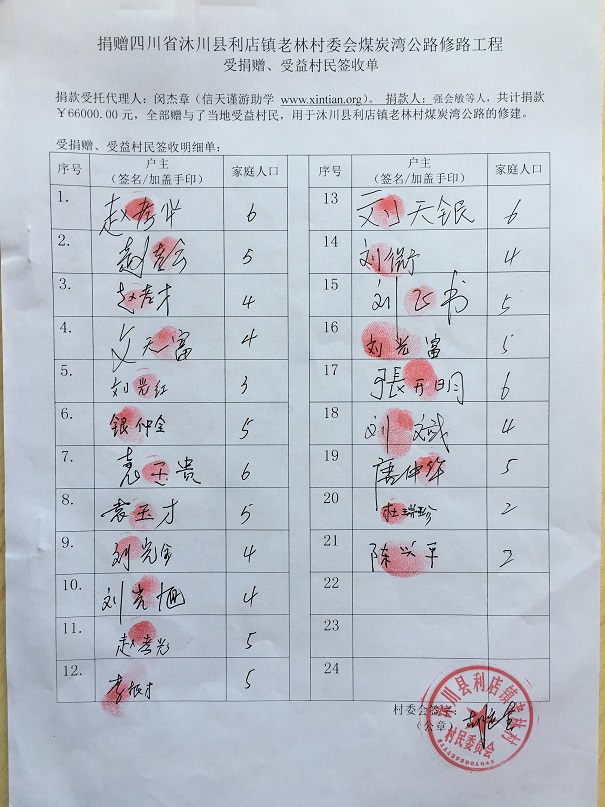 捐赠四川省沐川县利店镇老林村委会煤炭湾公路修路工程
受捐赠、受益村民签收单
捐款受托代理人：闵杰章（信天谨游助学 www.xintian.org）。 捐款人：强会敏等人，共计捐款
￥66000.00 元，全部赠与了当地受益村民，用于沐川县利店镇老林村煤炭湾公路的修建。
受捐赠、受益村民签收明细单：
序号 户主（签名/加盖手印） 家庭人口 序号 户主（签名/加盖手印） 家庭人口
1. 赵孝华 6 13 刘天银 6
2. 赵孝云 5 14 刘衡 4
3. 赵孝才 4 15 刘 书 5
4. 文天富 4 16 刘光富 5
5. 刘光红 3 17 張开明 6
6. 银仲全 5 18 刘斌 4
7. 袁玉贵 6 19 唐仲华 5
8. 袁玉才 5 20 杜瑞珍 2
9. 刘光金 4 21 陈兴平 2
10. 刘光 4 22
11. 赵孝光 5 23
12. 李振才 5 24
村委会签字：
（公章）
沐川县利店镇老林村
村民委员会